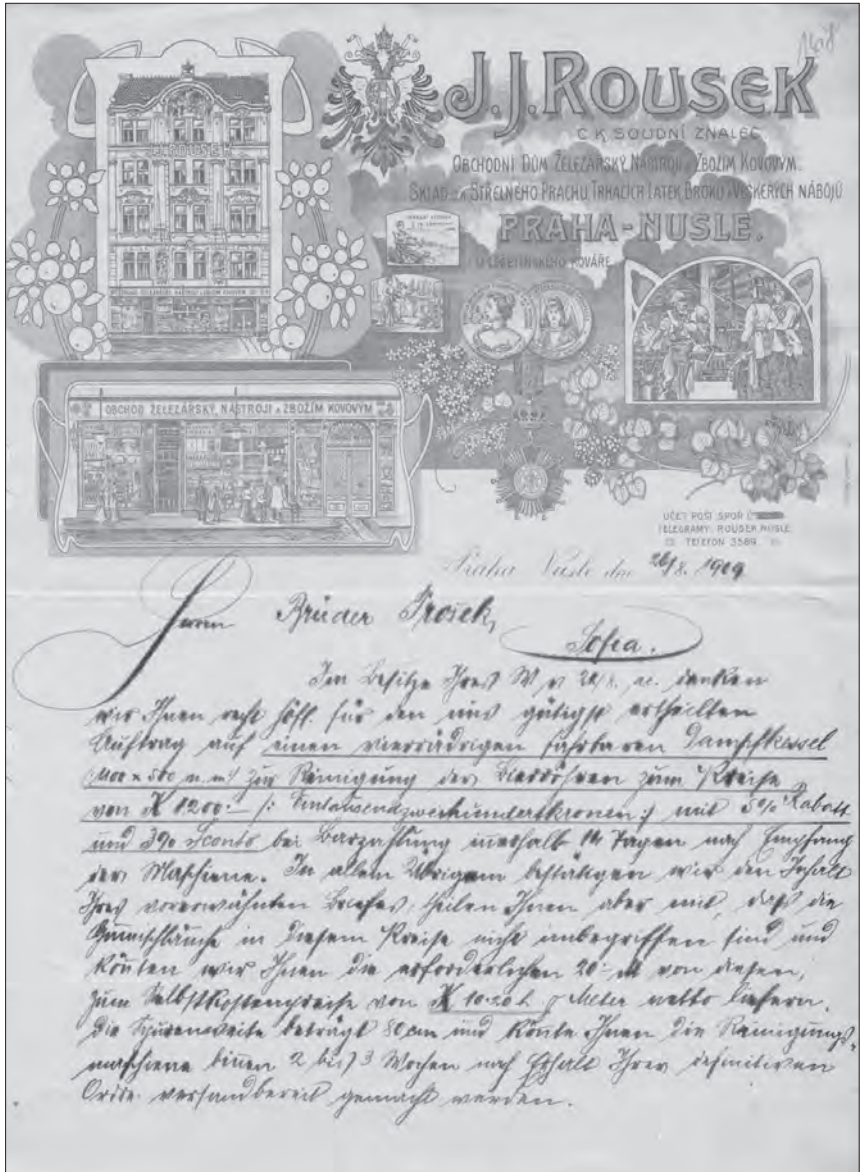 J. J. ROUSEK
C. K. SOUDNÍ ZNALEC.
OBCHODNÍ DŮM ŽELEZÁŘSKÝ, NÁSTROJI A ZBOŽÍM KOVOVÝM.
SKLAD STŘELNÉHO PRACHU, TRHACÍCH LÁTEK, BROKŮ A VEŠKERÝCH NÁBOJŮ
PRAHA-NUSLE.
J. J. ROUSEK
OBCHOD ŽELEZÁŘSKÝ, NÁSTROJI A ZBOŽÍM KOVOVÝM
ÚČET POŠT. SPOŘ.
TELEGRAMY: ROUSEK NUSLE.
TELEFON 3569.
Praha Nusle dne 1909
Herren Brüder Prošek,
Sofia.
Im Besitze Ihres danken
wir Ihnen recht höfl. für den uns gütigst ertheilten
Auftrag auf einen vierrädrigen fahrbaren Dampfkessel
zur Reinigung der Bierröhren zum Preise
von K 1200·- /: Eintausendzweihundertkronen :/ mit 5% Rabatt
und 3% Sconto bei Barzahlung innerhalb 14 Tagen nach Empfang
der Maschiene. In allem Übrigem bestätigen wir den Inhalt
Ihres vorerwähnten Briefes, theilen Ihnen aber mit, daß die
Gum̅ischläuche in diesem Preise nicht inbegriffen sind und
kön̅ten wir Ihnen die erforderlichen 20·- m von diesen,
zum Selbstkostenpreise von K 10·20 h. p Meter netto liefern.
die Spurenweite beträgt 80 cm und kön̅te Ihnen die Reinigungs-
maschiene bin̅en 2 bis 3 Wochen nach Erhalt Ihrer definitiven
Ordre versandbereit gemacht werden.